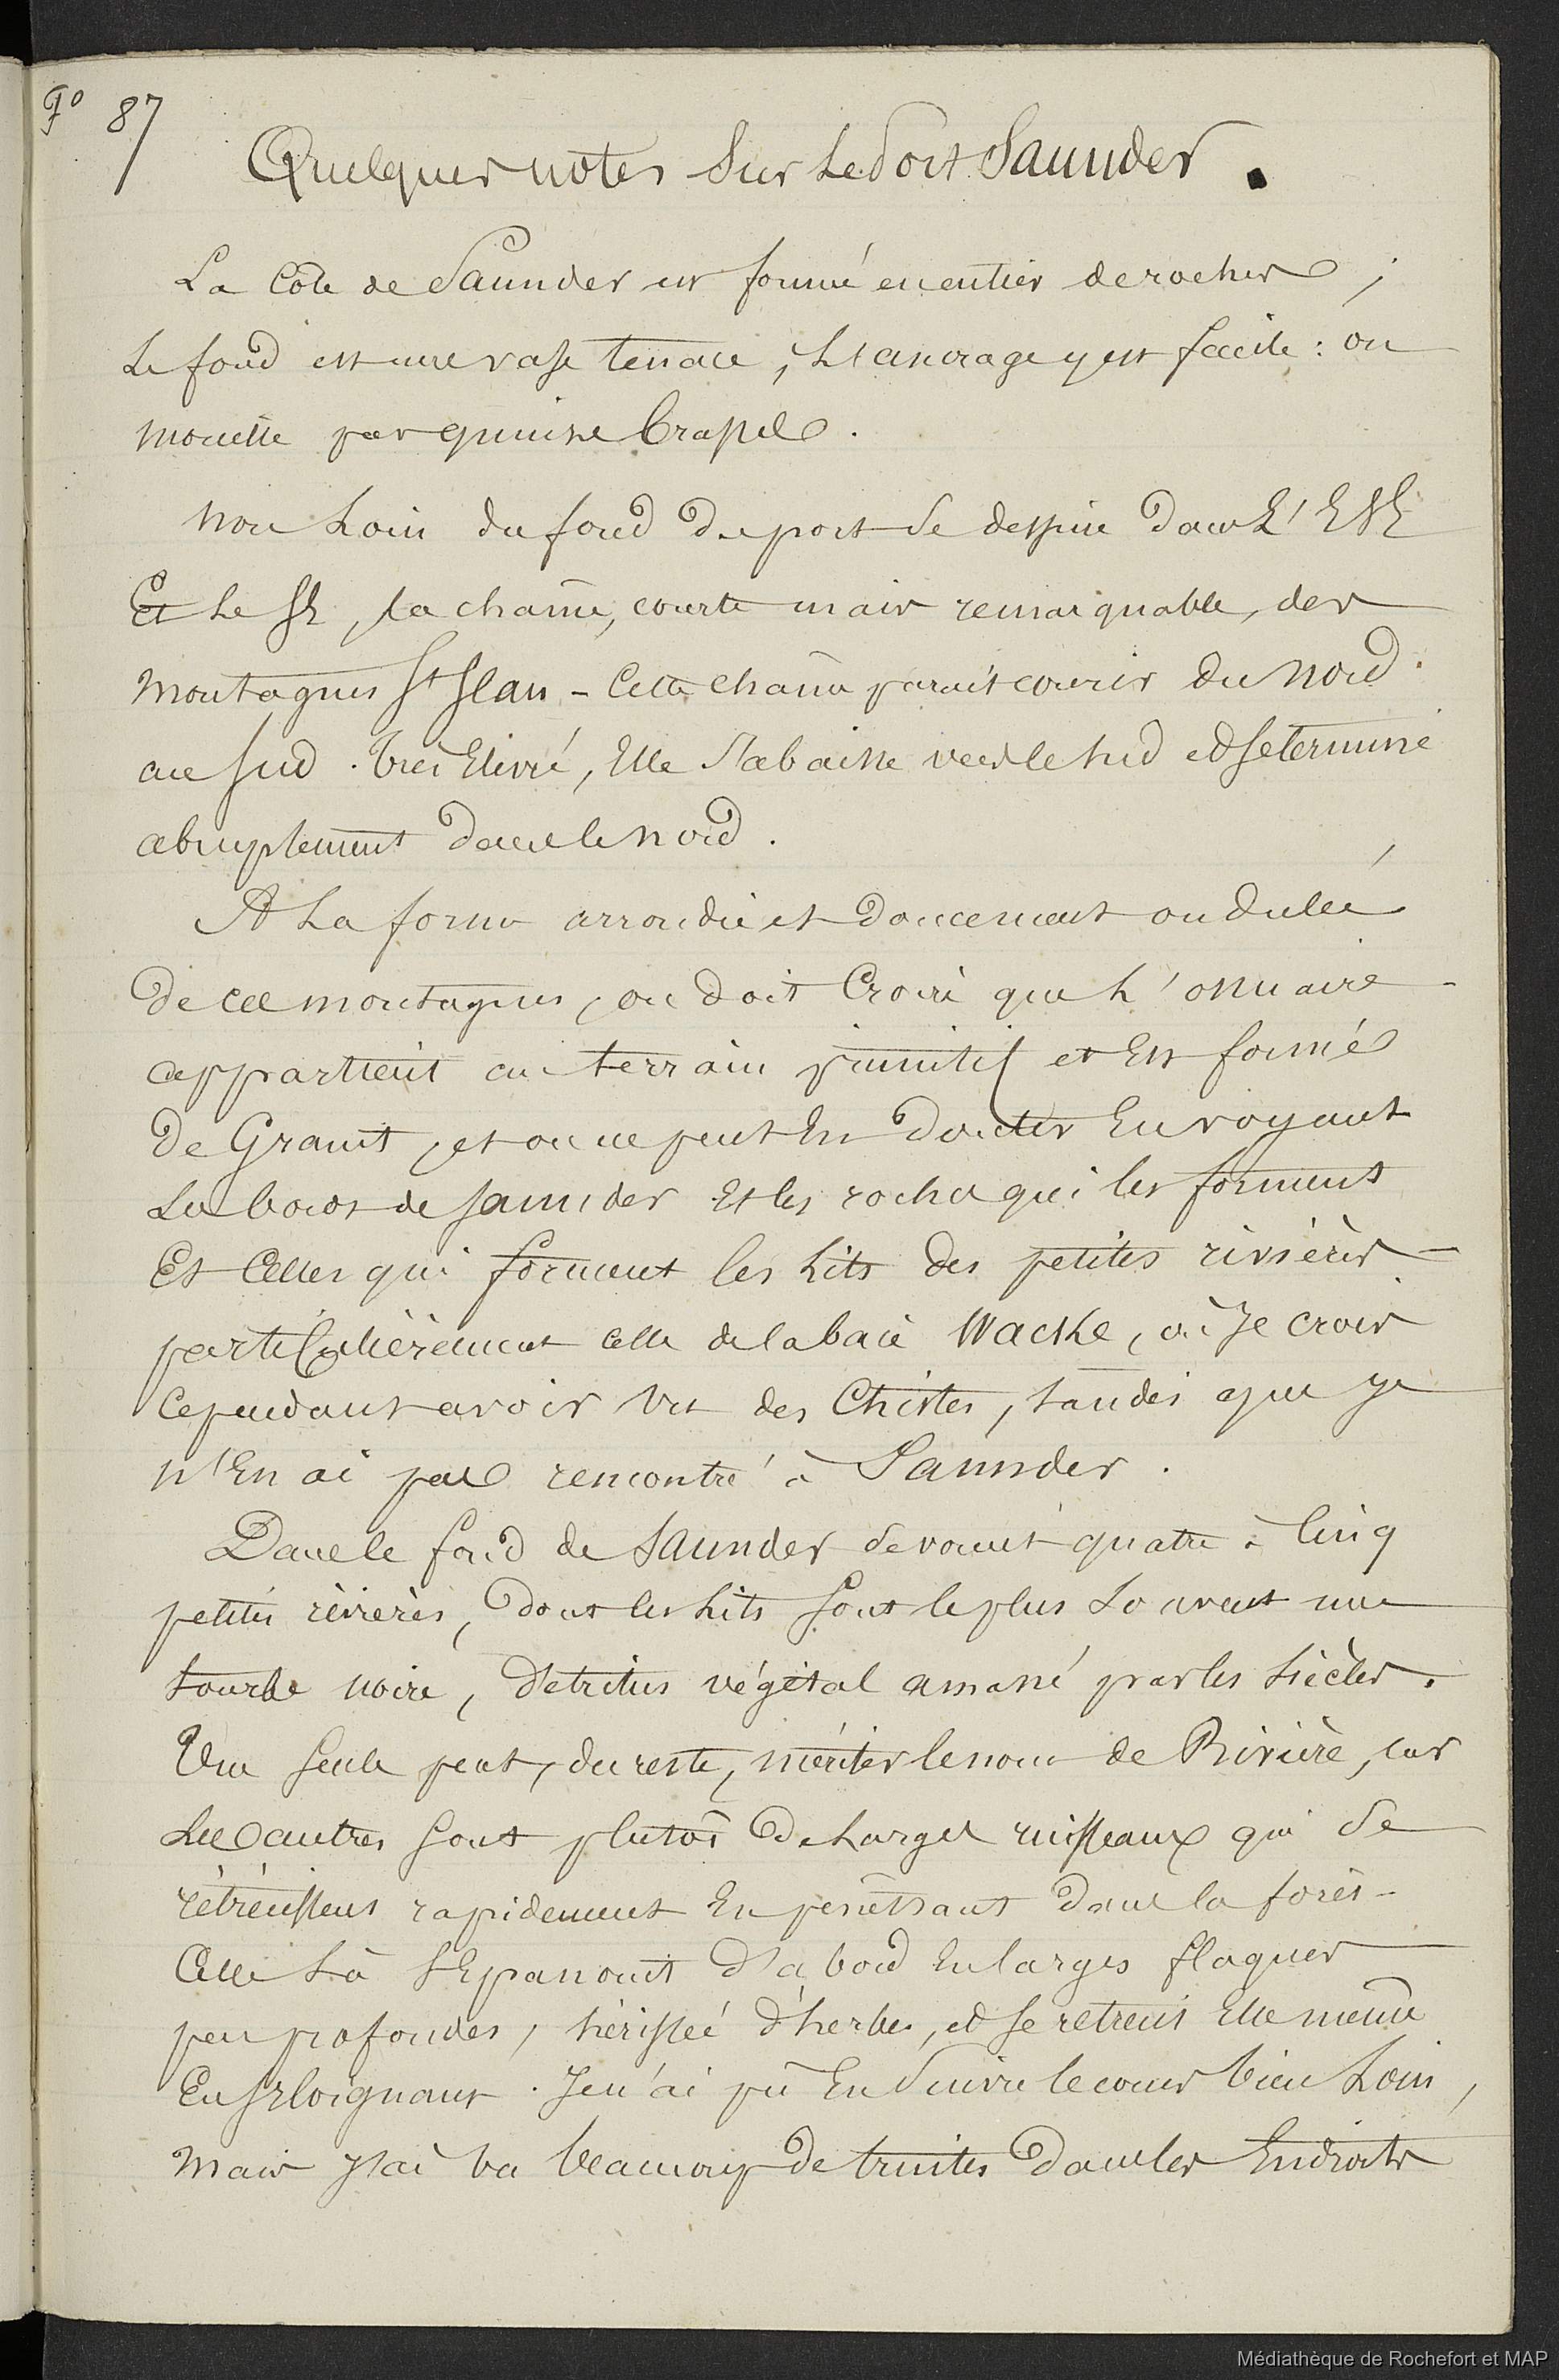 F° 87
Quelques notes sur le Port Saunders.
La Côte de Saunders est formée en entier de rochers ;
le fond est une vase tenace, l'ancrage y est facile : on
mouille par quinze brasses.
Non loin du fond du port se dessine dans l'ESE
Et le SE, la chaîne, courte mais remarquable, des
Montagnes St Jean - Cette chaîne paraît courir du Nord
au Sud. Très Elevée, Elle s'abaisse vers le sud et se termine
abruptement dans le nord.
A la forme arrondie et doucement ondulée
de ces montagnes, on doit Croire que l'ossuaire
appartient au terrain primitif et Est formé
de Granit, et on ne peut En douter En voyant
les bords de Saunders Et les roches qui les forment
Et Celles qui forment les lits des petites rivières -
particulièrement celle de la baie Wacke, où Je crois
Cependant avoir vu des Chistes, tandis que je
n'En ai pas rencontré à Saunders.
Dans le fond de Saunders se voient quatre à Cinq
petites rivières, dont les lits sont le plus souvent une
tourbe noire, détritus végétal amassé par les siècles.
Une seule peut, du reste, mériter le nom de Rivière, car
les autres sont plutôt de larges ruisseaux qui se
rétrécissent rapidement En pénétrant dans la forêt -
Celle là s'Epanouit d'abord En larges flaques
peu profondes, hérissée d'herbes, et se retrecit Elle même
En s'Eloignant. Je n'ai pû En suivre le cours bien loin,
Mais j'ai vu beaucoup de truites dans les Endroits
Médiathèque de Rochefort et MAP